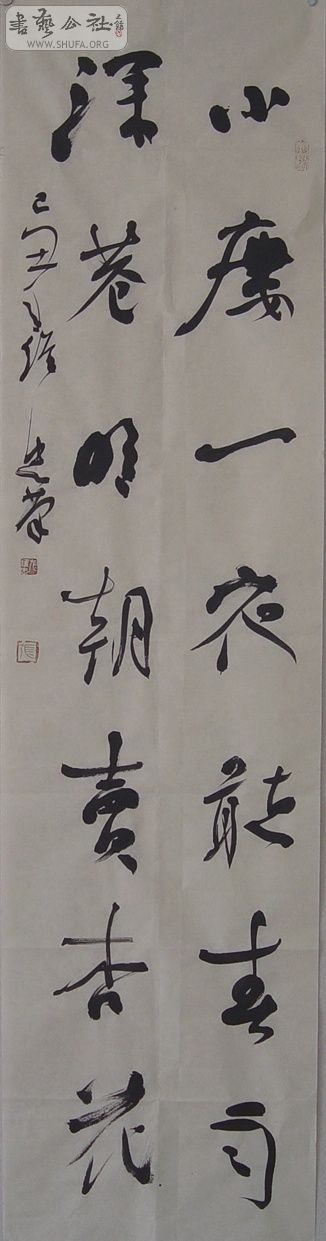 書藝公社
WWW.SHUFA.ORG
小廔一夜聽春雨
深巷明朝賣杏花
己丑